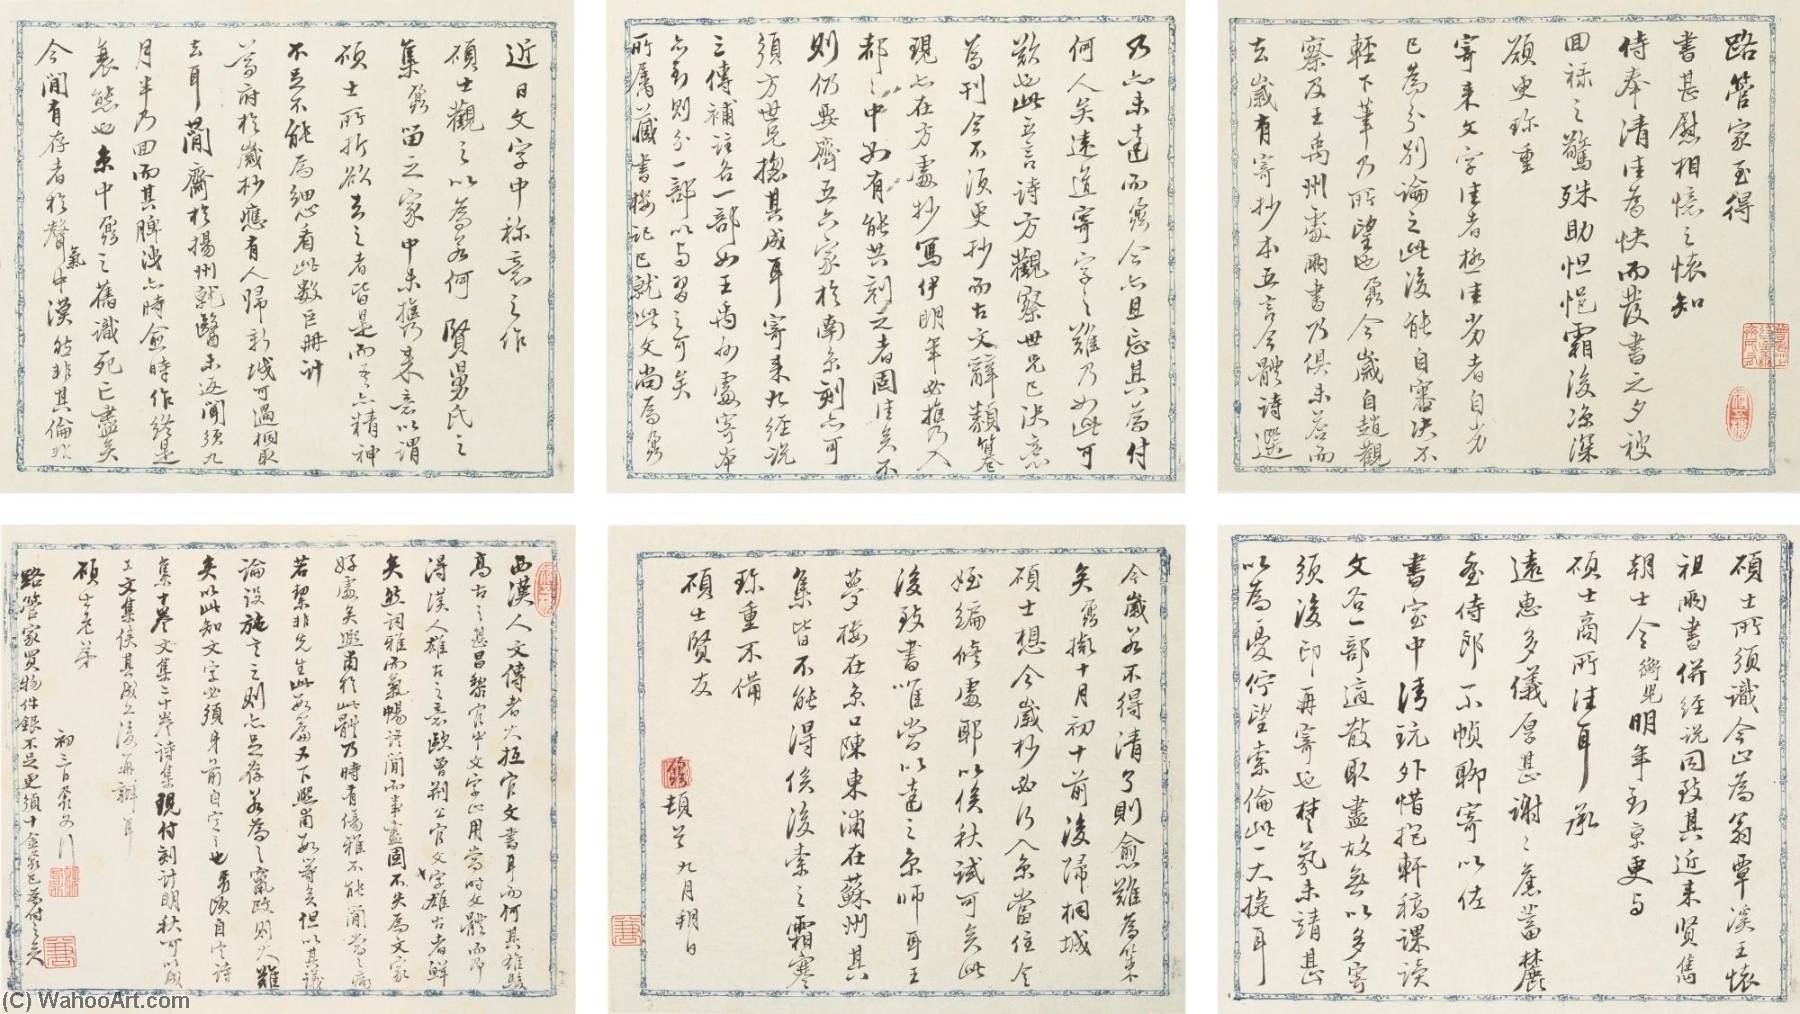 路管家至得
書甚慰相憶之懷知
侍奉清佳為快而發書之夕被
回祿之驚殊助怛悒霜後漸深
願更珍重
寄來文字佳者極佳劣者自劣
已為分別論之此後能自審決不
輕下筆乃所望也鼐今歲自趙觀
察及王禹州處兩書乃俱未答而
去歲有寄抄本五言今體詩選
乃亦未達而鼐今亦且忘其為付
何人矣遠道寄字之難乃如此可
歎也此五言詩方觀察世兄已決意
為刊今不須更抄而古文辭類纂
現亦在方處抄寫伊明年必攜入
都都中如有能共刻之者固佳矣不
則仍要齊五六家於南京刻亦可
須方世兄揔其成耳寄來九經說
三傳補註各一部如王禹州處寄本
亦到則分一部以與習之可矣
所屬藏書樓記已就此文尚為鼐
近日文字中稱意之作
碩士觀之以為若何賢舅氏之
集鼐留之家中未攜來意以謂
碩士所折欲去之者皆是而吾亦精神
不足不能為細心看此數巨冊計
尊府於歲杪應有人歸新城可過桐取
去耳蘭齋於揚州就醫未返聞須九
月半乃回而其脾洩亦時愈時作終是
衰態也京中鼐之舊識死亡盡矣
今聞有存者於聲氣中漠然非其倫非
碩士所須識今止為翁覃溪王懷
祖兩書併經說同致其近來賢雋
朝士令衡兒明年到京更與
碩士商所往耳承
遠惠多儀厚甚謝謝舊蓄麓
臺侍郎小幀聊寄以佐
書室中清玩外惜抱軒稿課讀
文各一部適散取盡故無以多寄
須後印再寄也楚氛未靖甚
以為憂佇望索倫此一大捷耳
今歲若不得清了則愈難為策
矣鼐擬十月初十前後歸桐城
碩士想今歲杪必行入京當住令
姪編修處耶以俟秋試可矣此
後致書唯當以達之京師耳王
夢樓在京口陳東浦在蘇州其
集皆不能得俟後索之霜寒
珍重不備
碩士賢友
鼐頓首九月朔日
西漢人文傳者大抵官文書耳而何其雄駿
高古之甚昌黎官中文字止用當時文體而即
得漢人雄古之意歐曾荊公官文字雄古者鮮
矣然詞雅而氣暢語簡而事盡固不失為文家
好處矣熙甫於此體乃時有傷雅不能簡當之病
若絜非先生此數篇又下熙甫數等矣但以其議
論設施言之則亦足存若為之竄改則大難
矣以此知文字必須身前自定之也弟頃自定詩
集十卷文集二十卷詩集現付刻計明秋可以成
工文集俟其成之後再辦耳
碩士老弟
初三日鼐又行
路管家買物件銀不足更須十金鼐已為付之矣
(C) WahooArt.com